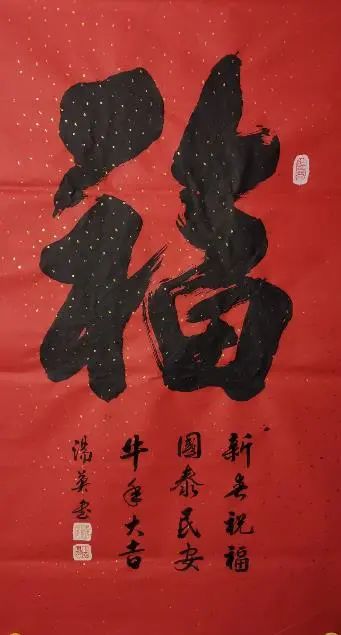 福
新春祝福
國泰民安
牛年大吉
湯英书